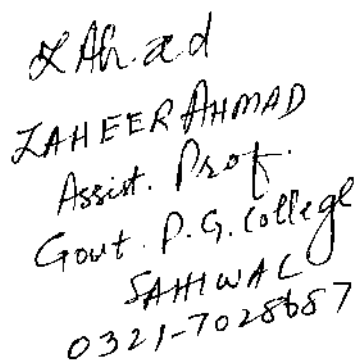 ZAHEER AHMAD
Assist. Prof.
Govt. P.G. College
SAHIWAL
0321-7028687